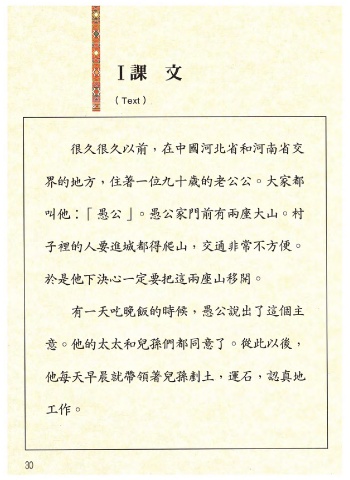 I 課 文
（Text）
很久很久以前，在中國河北省和河南省交
界的地方，住著一位九十歲的老公公。大家都
叫他：「愚公」。愚公家門前有兩座大山。村
子裡的人要進城都得爬山，交通非常不方便。
於是他下決心一定要把這兩座山移開。
有一天吃晚飯的時候，愚公說出了這個主
意。他的太太和兒孫們都同意了。從此以後，
他每天早晨就帶領著兒孫剷土，運石，認真地
工作。
30